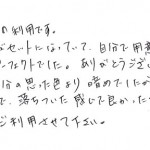 の利用です。
がセットになっていて、自分で用意
ーフェクトでした。ありがとうござ
分の思った色より暗めでしたが
で、落ちついた感じで良かった
ご利用させて下さい。